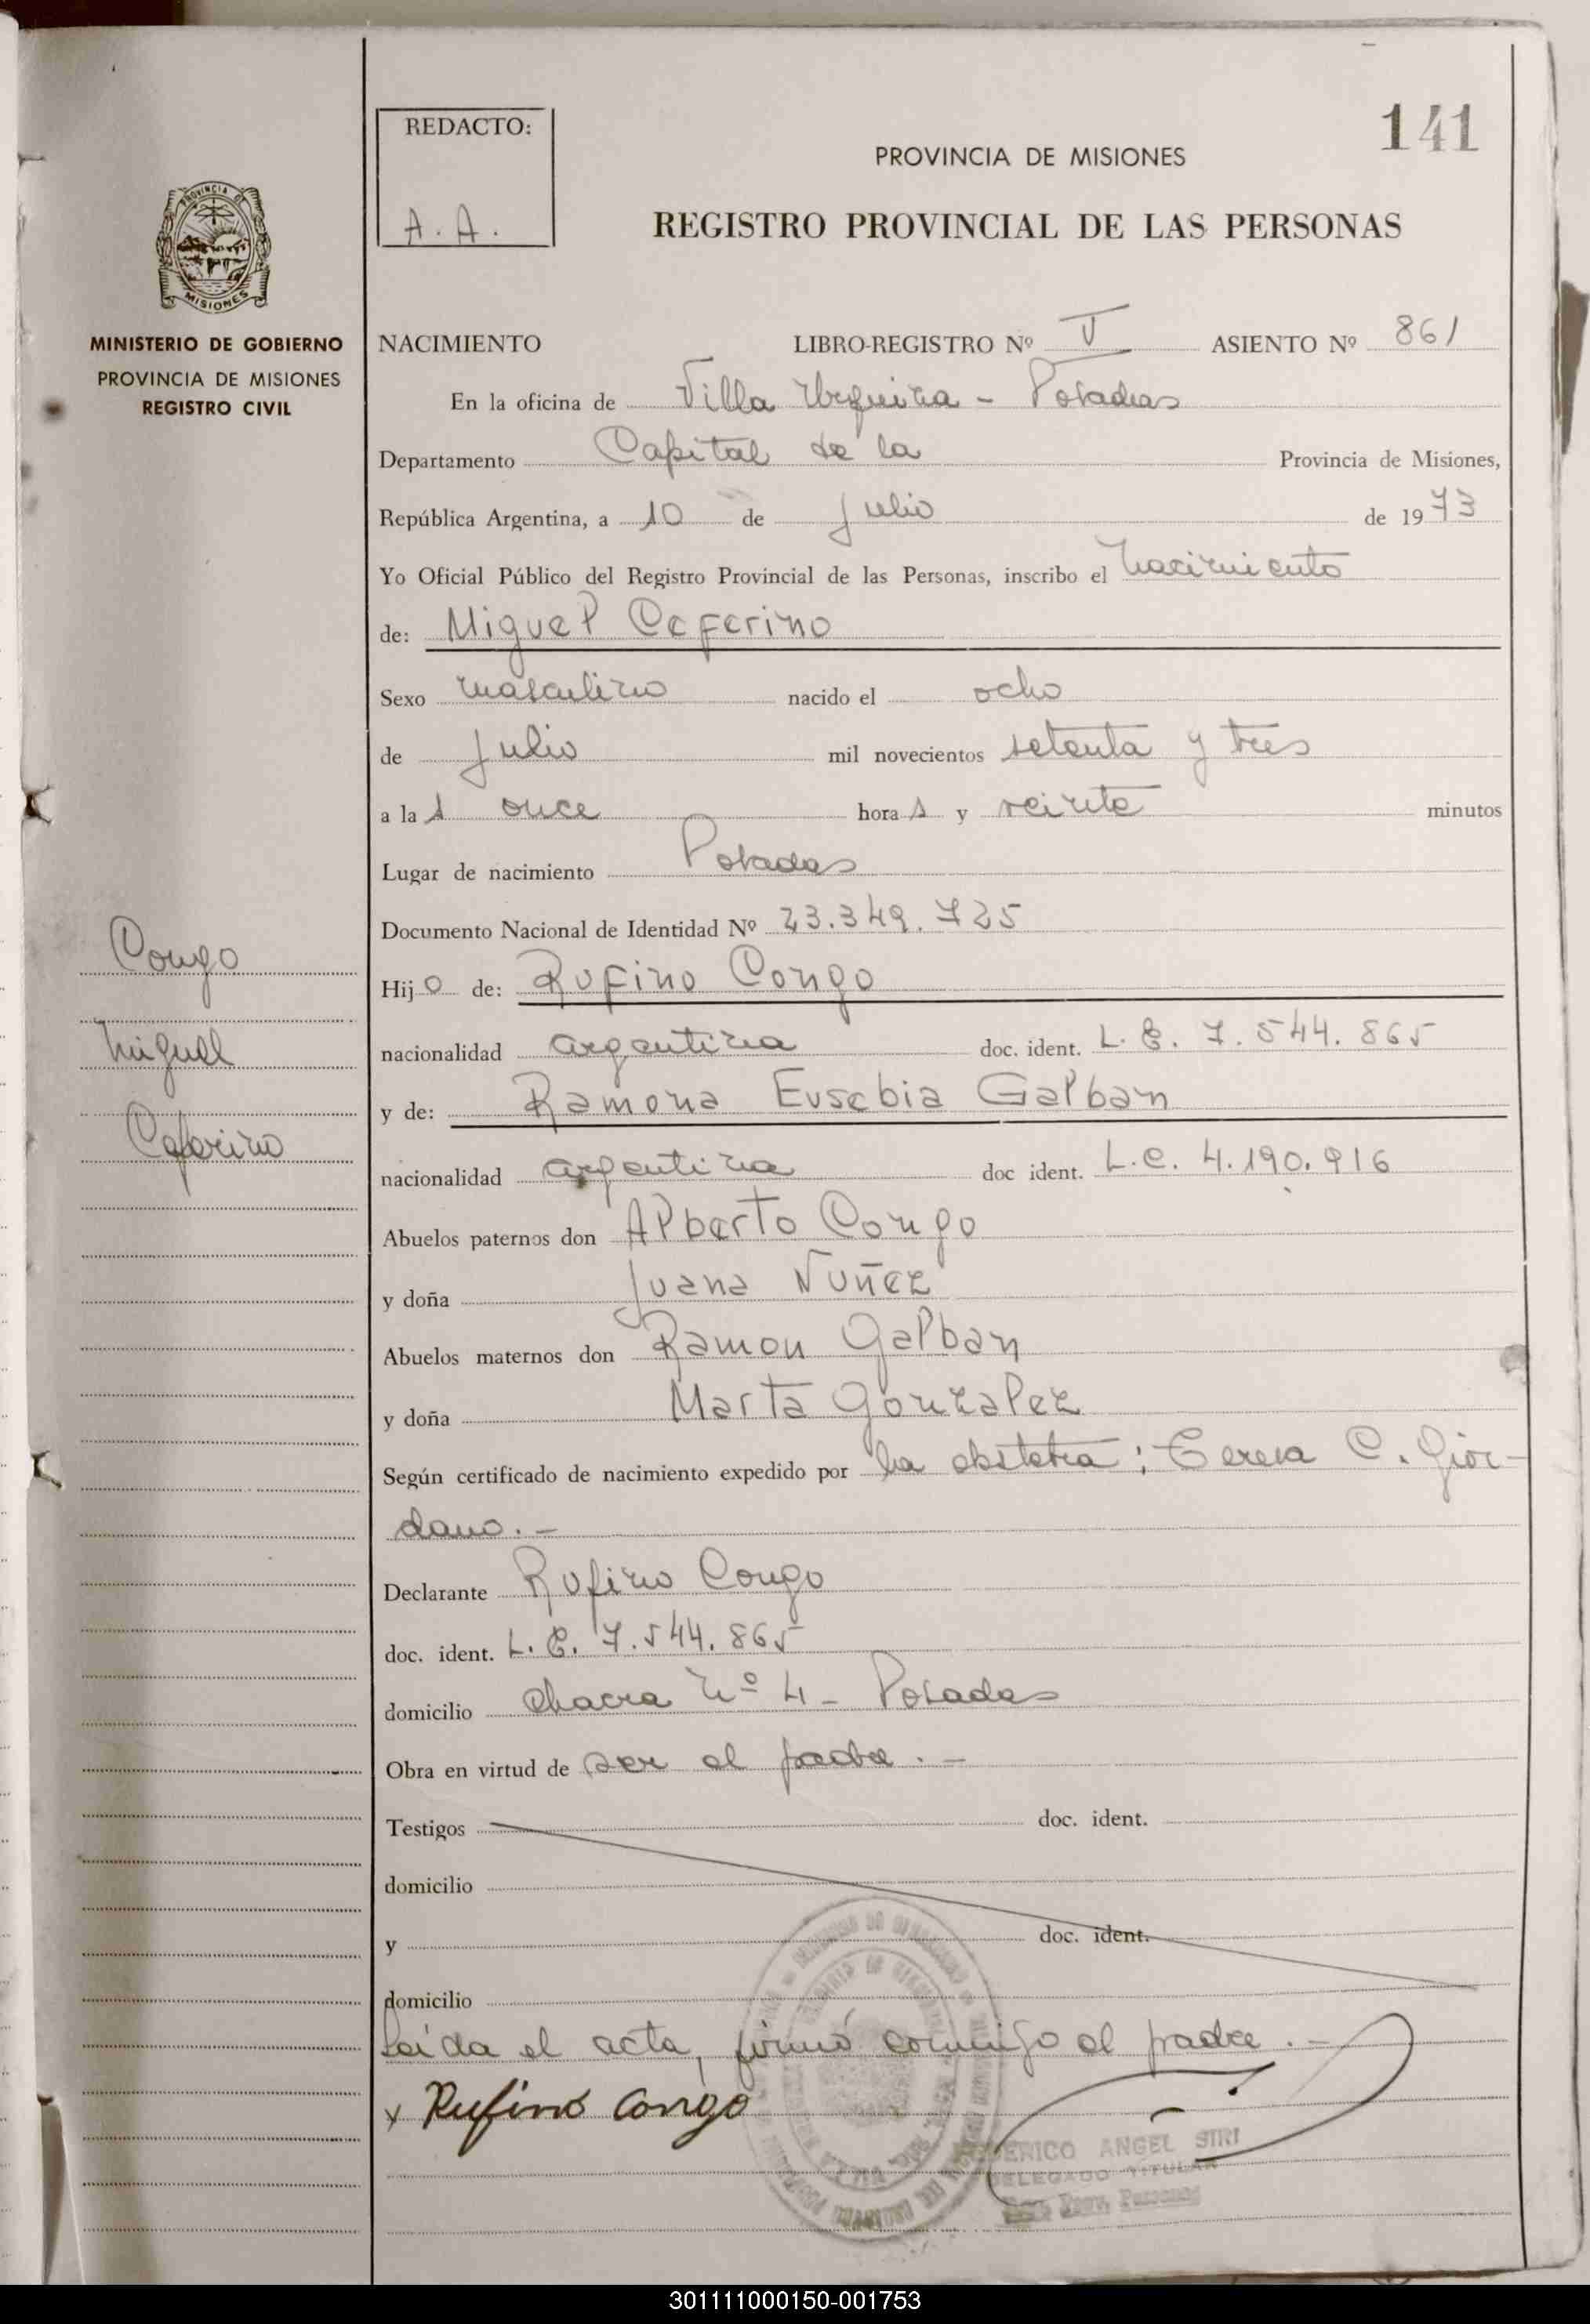 141
REDACTO:
A. A.
PROVINCIA DE MISIONES
REGISTRO PROVINCIAL DE LAS PERSONAS
PROVINCIA DE
MISIONES
MINISTERIO DE GOBIERNO
PROVINCIA DE MISIONES
REGISTRO CIVIL
NACIMIENTO LIBRO-REGISTRO Nº V ASIENTO Nº 861
En la oficina de Villa Urquiza - Posadas
Departamento Capital de la Provincia de Misiones,
República Argentina, a 10 de Julio de 1973
Yo Oficial Público del Registro Provincial de las Personas, inscribo el nacimiento
de: Miguel Ceferino
Sexo masculino nacido el ocho
de Julio mil novecientos setenta y tres
a las once horas y veinte minutos
Lugar de nacimiento Posadas
Documento Nacional de Identidad Nº 23.349.725
Hijo de: Rufino Congo
nacionalidad argentina doc. ident. L.E. 7.544.865
y de: Ramona Eusebia Galban
nacionalidad argentina doc ident. L.C. 4.190.916
Abuelos paternos don Alberto Congo
y doña Juana Nuñez
Abuelos maternos don Ramon Galban
y doña Marta Gonzalez
Según certificado de nacimiento expedido por la obstetra: Teresa C. Gior-
dano.-
Declarante Rufino Congo
doc. ident. L.E. 7.544.865
domicilio Chacra Nº 4 - Posadas
Obra en virtud de ser el padre.-
Testigos doc. ident.
domicilio
y doc. ident.
domicilio
Leída el acta, firmó conmigo el padre.-
x Rufino Congo
ANGEL SIRI
DELEGADO TITULAR
Congo
Miguel
Ceferino
301111000150-001753